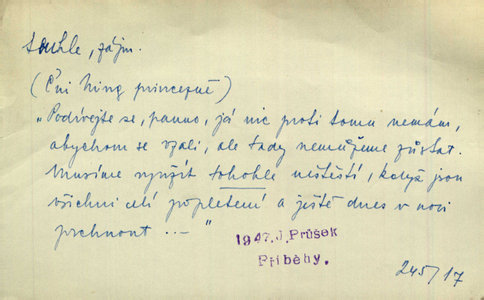 tenhle, zájm.
(Čui Ning princezně)
„Podívejte se, panno, já nic proti tomu nemám,
abychom se vzali, ale tady nemůžeme zůstat.
Musíme využít tohohle neštěstí, když jsou
všichni celí popletení a ještě dnes v noci
prchnout ... — "
1947. J. Průšek
Příběhy.
245/17